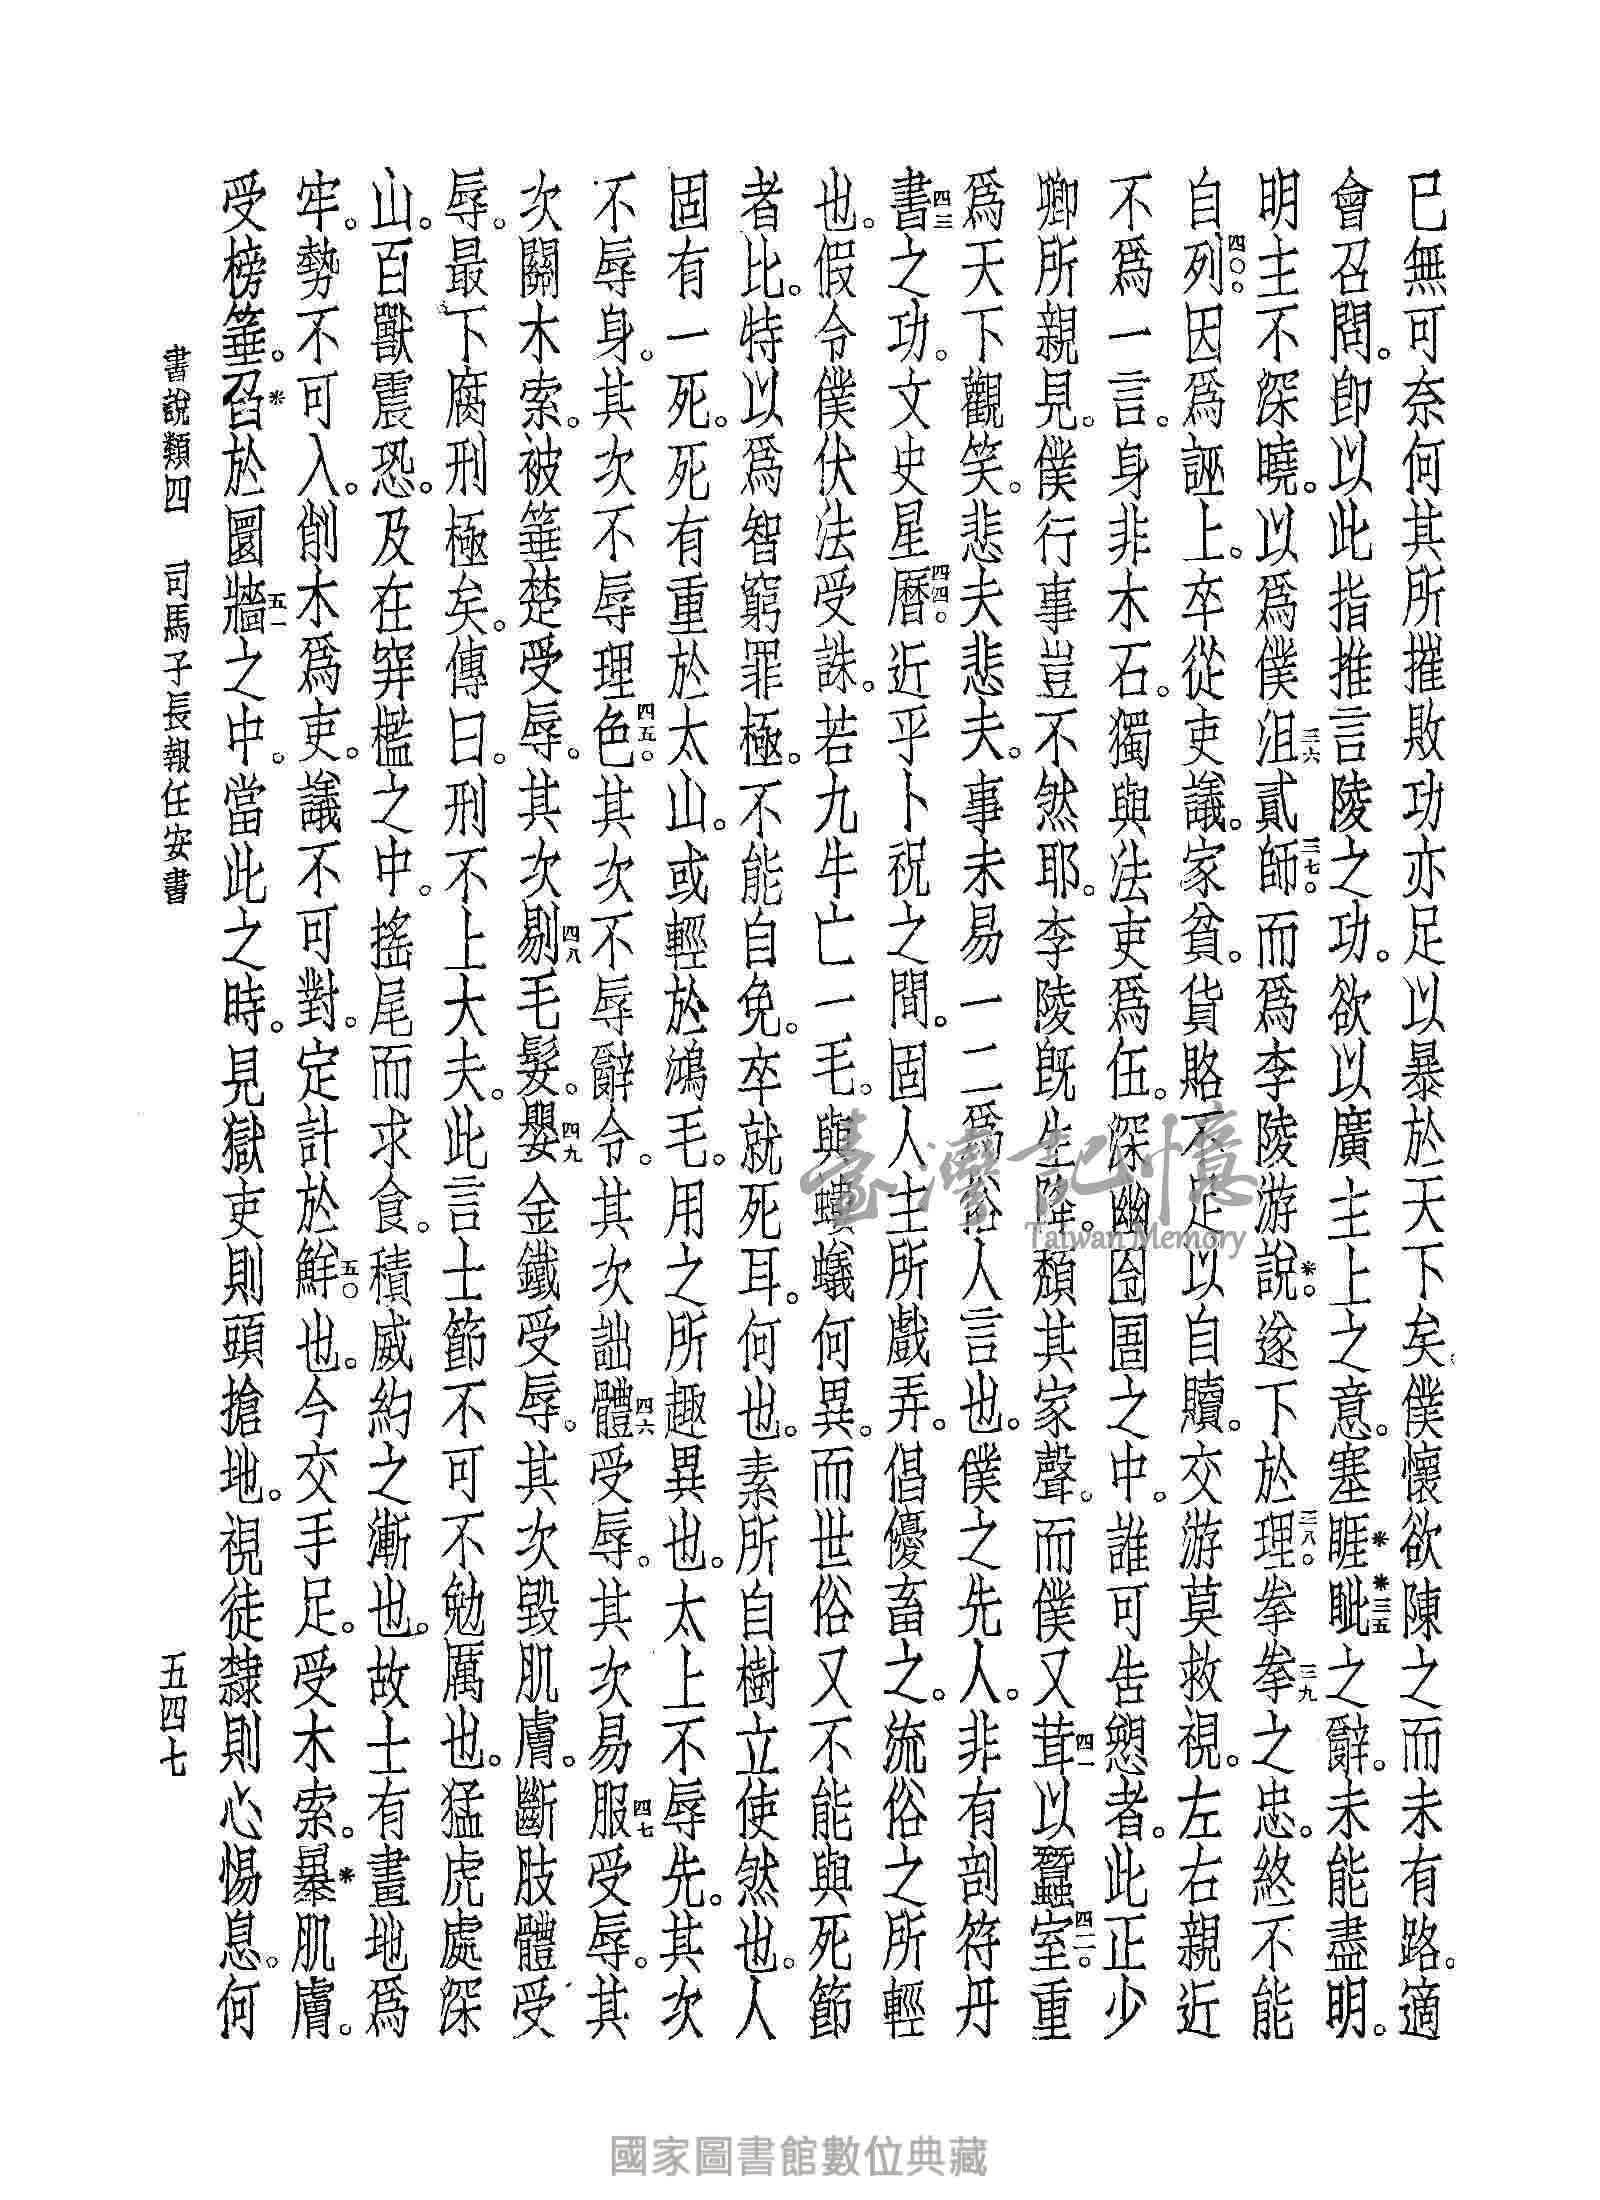 已無可奈何其所摧敗功亦足以暴於天下矣僕懷欲陳之而未有路。適
會召問。卽以此指推言陵之功。欲以廣主上之意。塞睚*眦*三五之辭。未能盡明。
明主不深曉。以爲僕沮三六貳師三七。而爲李陵游說*。遂下於理三八。拳拳三九之忠。終不能
自列四〇。因爲誣上。卒從吏議。家貧。貨賂不足以自贖。交游莫救視。左右親近
不爲一言。身非木石。獨與法吏爲伍。深幽囹圄之中。誰可告愬者。此正少
卿所親見。僕行事豈不然耶。李陵旣生降。頹其家聲。而僕又茸四一以蠶室四二。重
爲天下觀笑。悲夫悲夫。事未易一二爲俗人言也。僕之先人。非有剖符丹
書四三之功。文史星曆四四。近乎卜祝之間。固人主所戲弄。倡優畜之。流俗之所輕
也。假令僕伏法受誅。若九牛亡一毛。與螻蟻何異。而世俗又不能與死節
者比。特以爲智窮罪極。不能自免。卒就死耳。何也。素所自樹立使然也。人
固有一死。死有重於太山。或輕於鴻毛。用之所趣異也。太上不辱先。其次
不辱身。其次不辱理色四五。其次不辱辭令。其次詘體四六受辱。其次易服四七受辱。其
次關木索。被箠楚受辱。其次剔四八毛髮。嬰四九金鐵受辱。其次毀肌膚。斷肢體受
辱。最下腐刑極矣。傳曰。刑不上大夫。此言士節不可不勉厲也。猛虎處深
山。百獸震恐。及在穽檻之中。搖尾而求食。積威約之漸也。故士有畫地爲
牢。勢不可入。削木爲吏。議不可對。定計於鮮五〇也。今交手足。受木索。暴*肌膚。
受榜箠。召*於圜牆五一之中。當此之時。見獄吏則頭搶地。視徒隸則心惕息。何
書說類四 司馬子長報任安書 五四七
臺灣記憶
Taiwan Memory
國家圖書館數位典藏